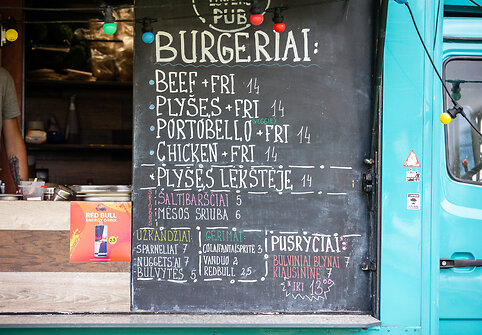 LOVERS
PUB
BURGERIAI:
BEEF + FRI 14
PLYŠĖS + FRI 14
PORTOBELLO + FRI 14
CHICKEN + FRI 14
PLYŠĖS LĖKŠTĖJE 14
ŠALTIBARŠČIAI 5
MĖSOS SRIUBA 6
UŽKANDŽIAI:
SPARNELIAI 7
NUGGETSAI 7
BULVYTĖS 5
GĖRIMAI:
COLA/FANTA/SPRITE 3
VANDUO 2
REDBULL 2,5
PUSRYČIAI:
BULVINIAI BLYNAI 7
KIAUŠINIENĖ 7
IKI 13:00
RED BULL
ENERGY DRINK